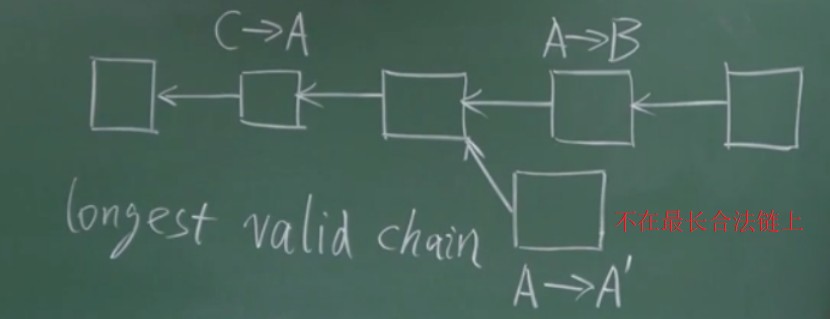 C→A
A→B
longest valid chain
不在最长合法链上
A→A'